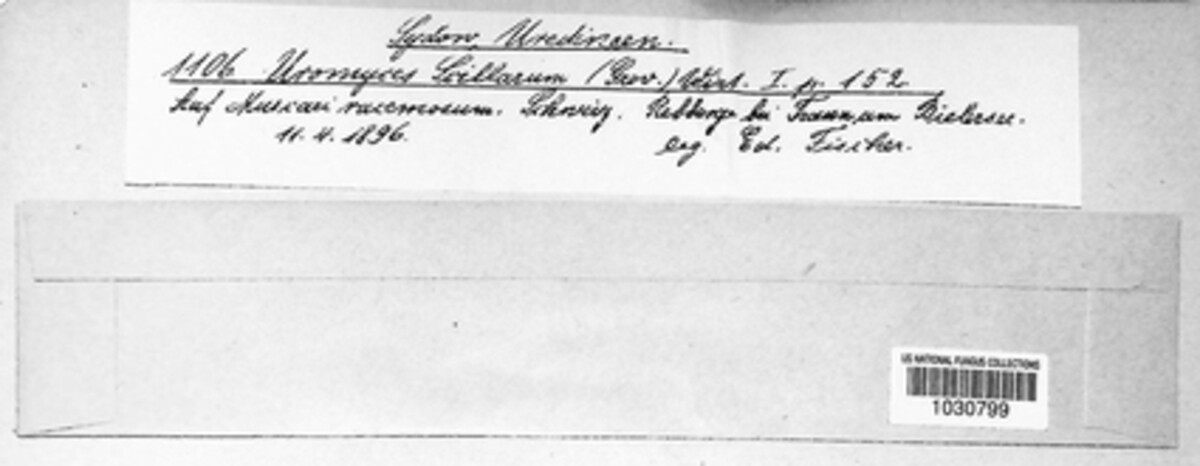 Sydow, Uredineen.
1106 Uromyces Scillarum (Grev.) Wint. I. p. 152
Auf Muscari racemosum. Schweiz. Rebberge bei Twann, am Bielersee.
11. 4. 1896. leg. Ed. Fischer.
US NATIONAL FUNGUS COLLECTIONS
1030799